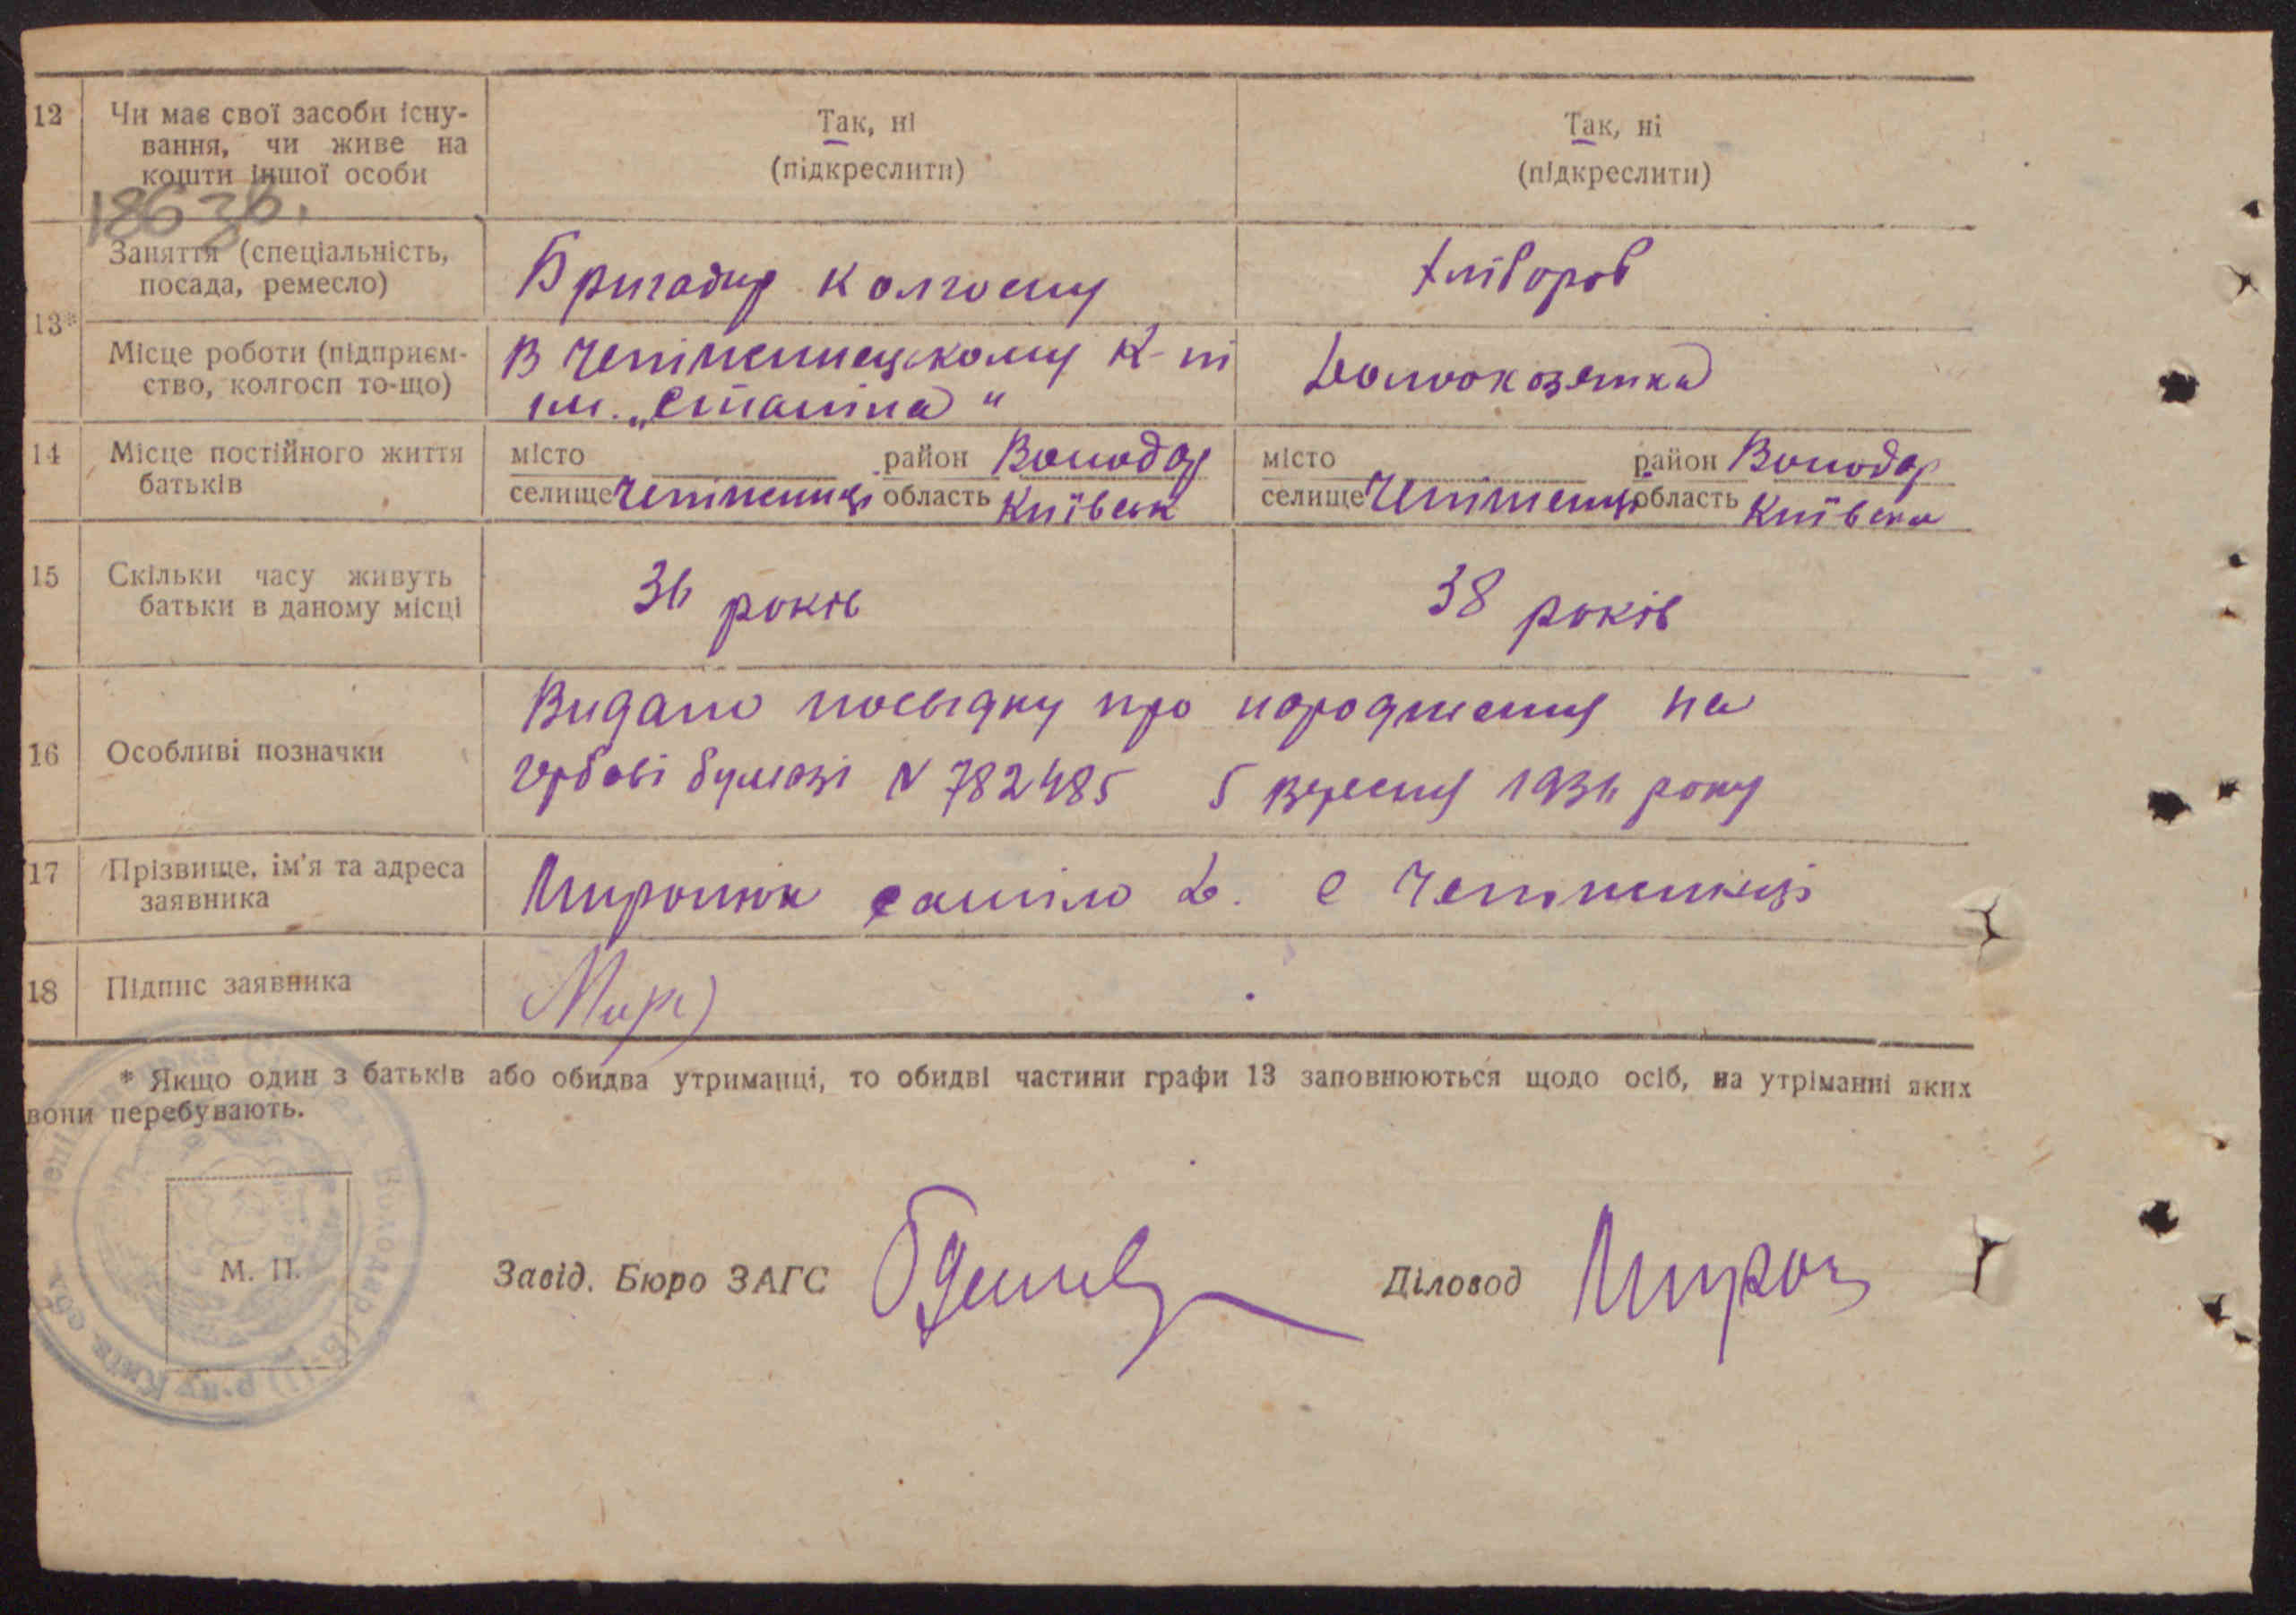 12 Чи має свої засоби існу-
вання, чи живе на
кошти іншої особи
Так, ні
(підкреслити)
Так, ні
(підкреслити)
13* Заняття (спеціальність,
посада, ремесло)
Бригадир колгоспу
Хлібороб
Місце роботи (підприєм-
ство, колгосп то-що)
В Чепіженецькому К-пі
ім. „Сталіна"
Домохозяйка
14 Місце постійного життя
батьків
місто район Володар
селище Чепіженці область Київськ
місто район Володар
селище Чепіженці область Київськ
15 Скільки часу живуть
батьки в даному місці
36 років
38 років
16 Особливі позначки
Видано посвідку про народження на
гербові бумазі N 782485 5 вересня 1936 року
17 Прізвище, ім'я та адреса
заявника
Миронюк Л. с
18 Підпис заявника
Мир
* Якщо один з батьків або обидва утриманці, то обидві частини графи 13 заповнюються щодо осіб, на утріманні яких
вони перебувають.
М. П.
Завід. Бюро ЗАГС
Діловод Мирон